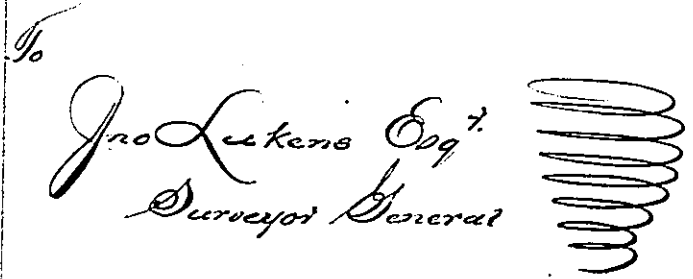 To
Jno Lukens Esqr.
Surveyor General